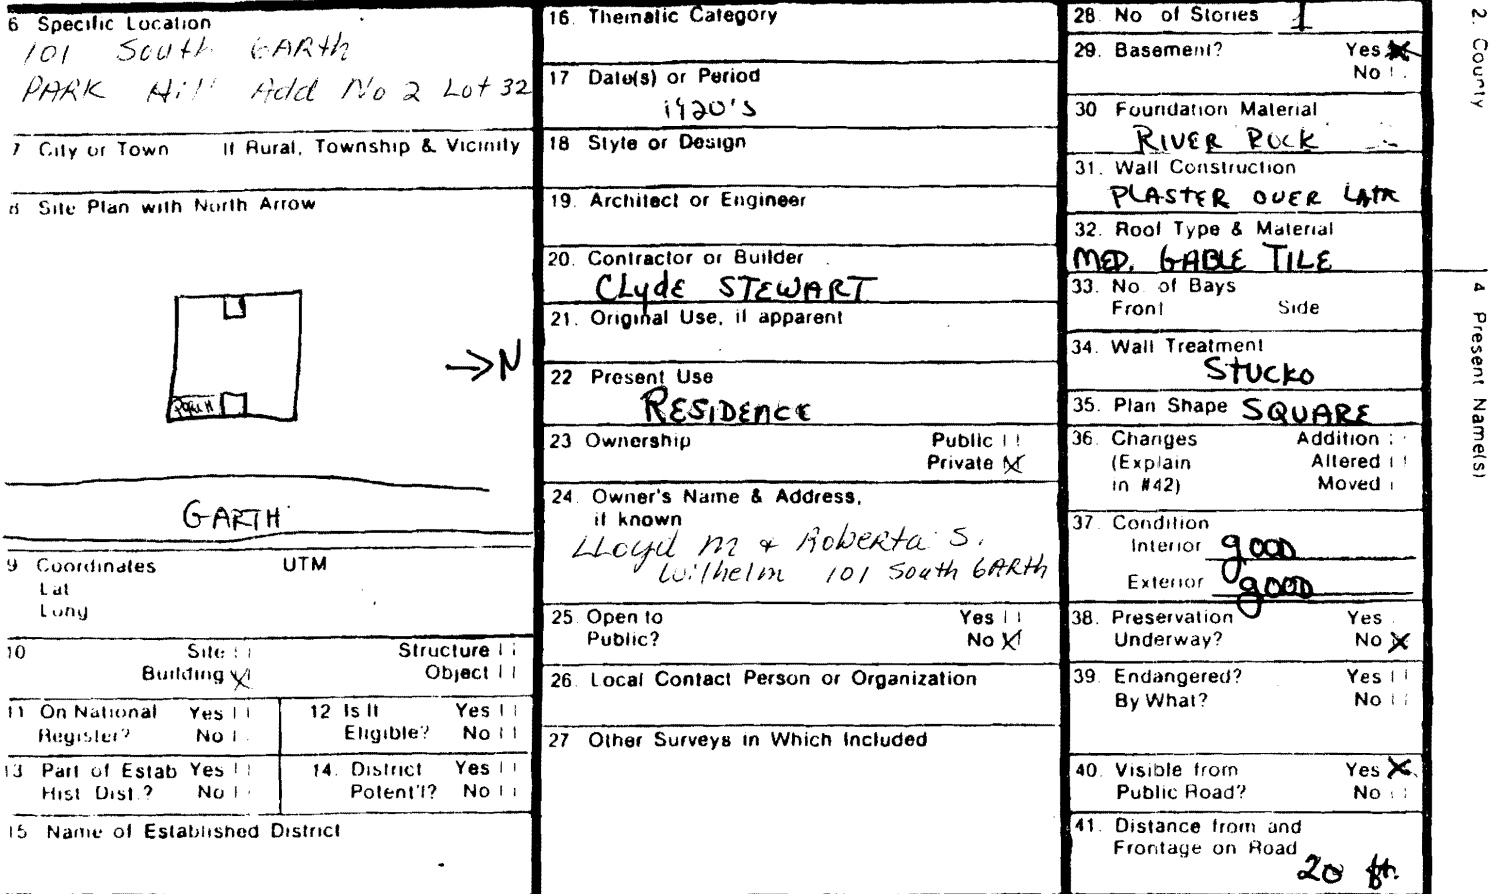 6 Specific Location
101 South GARth
PARK Hill Add No 2 Lot 32
7 City or Town If Rural, Township & Vicinity
8 Site Plan with North Arrow
→N
PORCH
GARTH
9 Coordinates UTM
Lat
Long
10 Site Structure
Building X Object
11 On National Yes
Register? No
12 Is It Yes
Eligible? No
13 Part of Estab Yes
Hist Dist.? No
14. District Yes
Potent'l? No
15 Name of Established District
16. Thematic Category
17 Date(s) or Period
1920's
18 Style or Design
19. Architect or Engineer
20. Contractor or Builder
CLydE STEWART
21. Original Use, if apparent
22 Present Use
RESIDENCE
23 Ownership Public
Private X
24. Owner's Name & Address,
if known
LLoyd M & RobERta S.
Wilhelm 101 South GARth
25. Open to Yes
Public? No X
26. Local Contact Person or Organization
27 Other Surveys in Which Included
28. No of Stories 1
29. Basement? Yes X
No
30 Foundation Material
RIVER ROCK
31. Wall Construction
PLASTER OVER LATH
32. Roof Type & Material
MED. GABLE TILE
33. No. of Bays
Front Side
34. Wall Treatment
STUCKO
35. Plan Shape SQUARE
36. Changes Addition
(Explain Altered
in #42) Moved
37. Condition
Interior good
Exterior good
38. Preservation Yes
Underway? No X
39. Endangered? Yes
By What? No
40. Visible from Yes X
Public Road? No
41. Distance from and
Frontage on Road
20 ft.
2. County
4 Present Name(s)